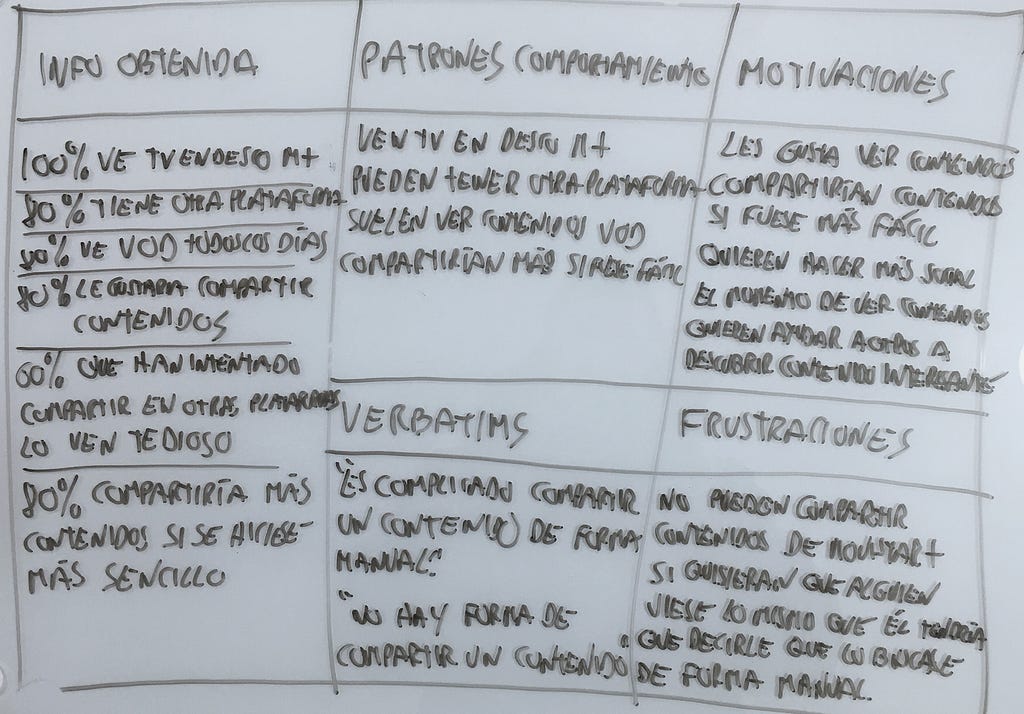 INFO OBTENIDA
100% VE TV EN DESCO M+
80% TIENE OTRA PLATAFORMA
80% VE VOD TODOS LOS DÍAS
80% LE GUSTARIA COMPARTIR
CONTENIDOS
60% QUE HAN INTENTADO
COMPARTIR EN OTRAS PLATAFORMAS
LO VEN TEDIOSO
80% COMPARTIRÍA MÁS
CONTENIDOS SI SE HICIESE
MÁS SENCILLO
PATRONES COMPORTAMIENTO
VEN TV EN DESCO M+
PUEDEN TENER OTRA PLATAFORMA
SUELEN VER CONTENIDOS VOD
COMPARTIRÍAN MÁS SI FUESE FÁCIL
VERBATIMS
"ES COMPLICADO COMPARTIR
UN CONTENIDO DE FORMA
MANUAL"
"NO HAY FORMA DE
COMPARTIR UN CONTENIDO"
MOTIVACIONES
LES GUSTA VER CONTENIDOS
COMPARTIRÍAN CONTENIDOS
SI FUESE MÁS FÁCIL
QUIEREN HACER MÁS SOCIAL
EL MOMENTO DE VER CONTENIDOS
QUIEREN AYUDAR A OTROS A
DESCUBRIR CONTENIDO INTERESANTE
FRUSTRACIONES
NO PUEDEN COMPARTIR
CONTENIDOS DE MOVISTAR+
SI QUISIERAN QUE ALGUIEN
VIESE LO MISMO QUE ÉL TENDRÍA
QUE DECIRLE QUE LO BUSCASE
DE FORMA MANUAL.